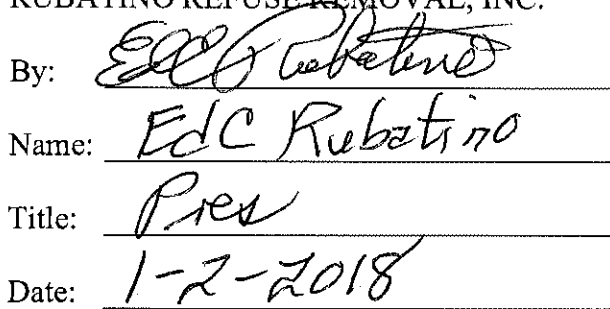 RUBATINO REFUSE REMOVAL, INC.
By: Ed C Rubatino
Name: Ed C Rubatino
Title: Pres
Date: 1-2-2018